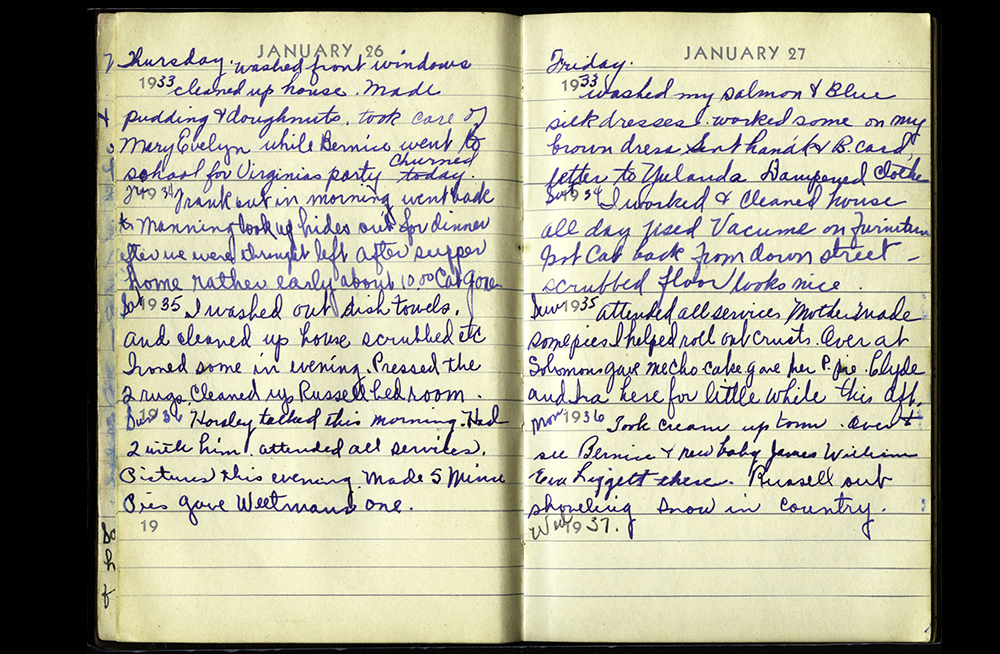 JANUARY 26
Thursday. washed front windows
1933 cleaned up house. Made
pudding & doughnuts. took care of
Mary Evelyn while Bernice went to
churned
school for Virginias party today.
1934 Frank out in morning went back
to Manning took up hides out for dinner
after we were through left after supper
home rather early about 10 00 Cat gone
Sat 1935 I washed out dish towels.
and cleaned up house scrubbed etc
Ironed some in evening. Pressed the
2 rugs. Cleaned up Russells bed room.
Sun 1936 Horsley talked this morning. Had
2 with him. attended all services.
Pictures this evening. made 5 Mince
Pies gave Weetmans one.
19
So
h
f
JANUARY 27
Friday.
1933 washed my salmon & Blue
silk dresses. worked some on my
brown dress Sent hand'k & B. card,
letter to Yulanda Dampened clothe
Sat 1934 I worked & cleaned house
all day used Vacume on furniture
Got Cat back from down street -
scrubbed floor looks nice.
Sun 1935 attended all services Mother made
some pies. I helped roll out crusts. Over at
Solomons gave me cho cake gave her P. pie. Clyde
and Ira here for little while this aft.
Mon 1936 Took cream up town. Over to
see Bernice & new baby James William
Eva Liggett there. Russell out
shoveling snow in country.
Wed 1937.